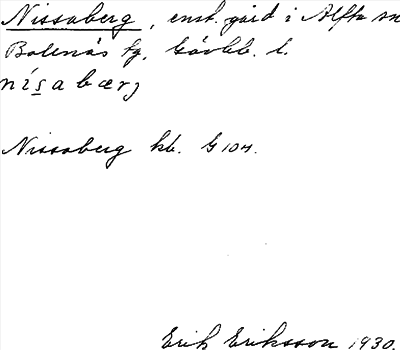 Nissaberg, ensk. gård i Alfta sn
Bollnäs tg. Gävleb. l.
nísabærj
Nissaberg kb. G 104.
Erik Eriksson 1930.